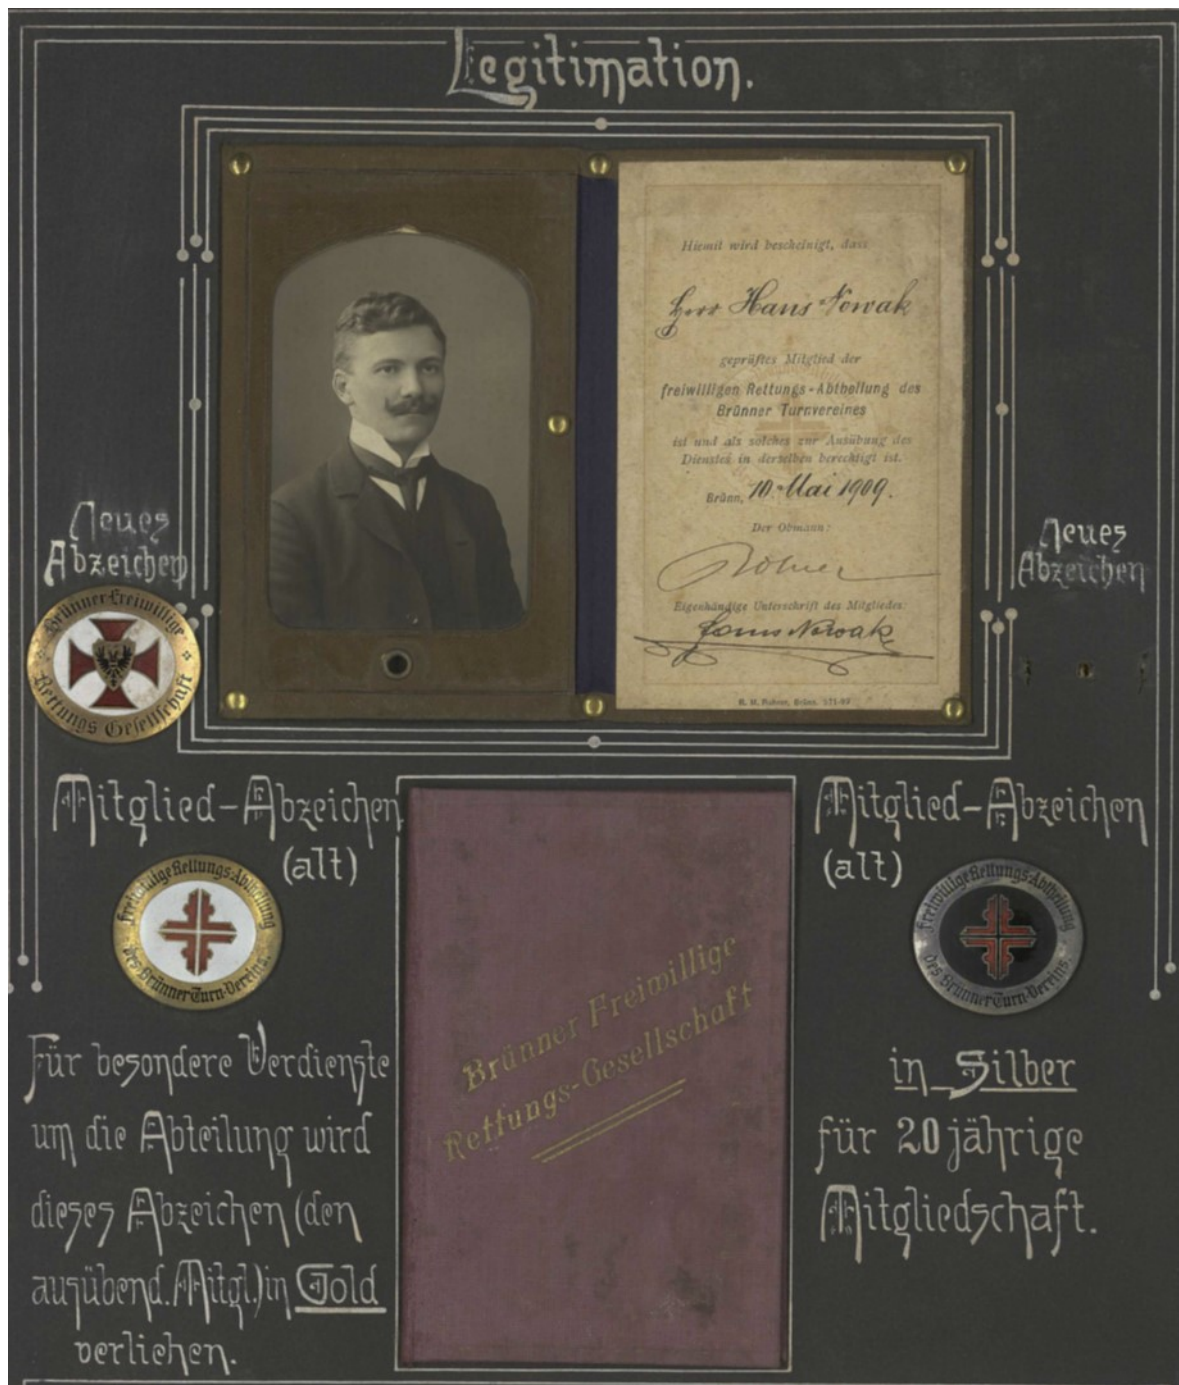 Legitimation.
Hiemit wird bescheinigt, dass
Herr Hans Nowak
geprüftes Mitglied der
freiwilligen Rettungs-Abtheilung des
Brünner Turnvereines
ist und als solches zur Ausübung des
Dienstes in derselben berechtigt ist.
Brünn, 10. Mai 1909.
Der Obmann:
Eigenhändige Unterschrift des Mitgliedes:
Hans Nowak
R. M. Rohrer, Brünn.
Neues
Abzeichen
Brünner Freiwillige
Rettungs Gesellschaft
Neues
Abzeichen
Mitglied-Abzeichen
(alt)
Freiwillige Rettungs-Abtheilung
des Brünner Turn-Vereins.
Für besondere Verdienste
um die Abteilung wird
dieses Abzeichen (den
ausübend. Mitgl.) in Gold
verliehen.
Brünner Freiwillige
Rettungs-Gesellschaft
Mitglied-Abzeichen
(alt)
Freiwillige Rettungs-Abtheilung
des Brünner Turn-Vereins.
in Silber
für 20 jährige
Mitgliedschaft.